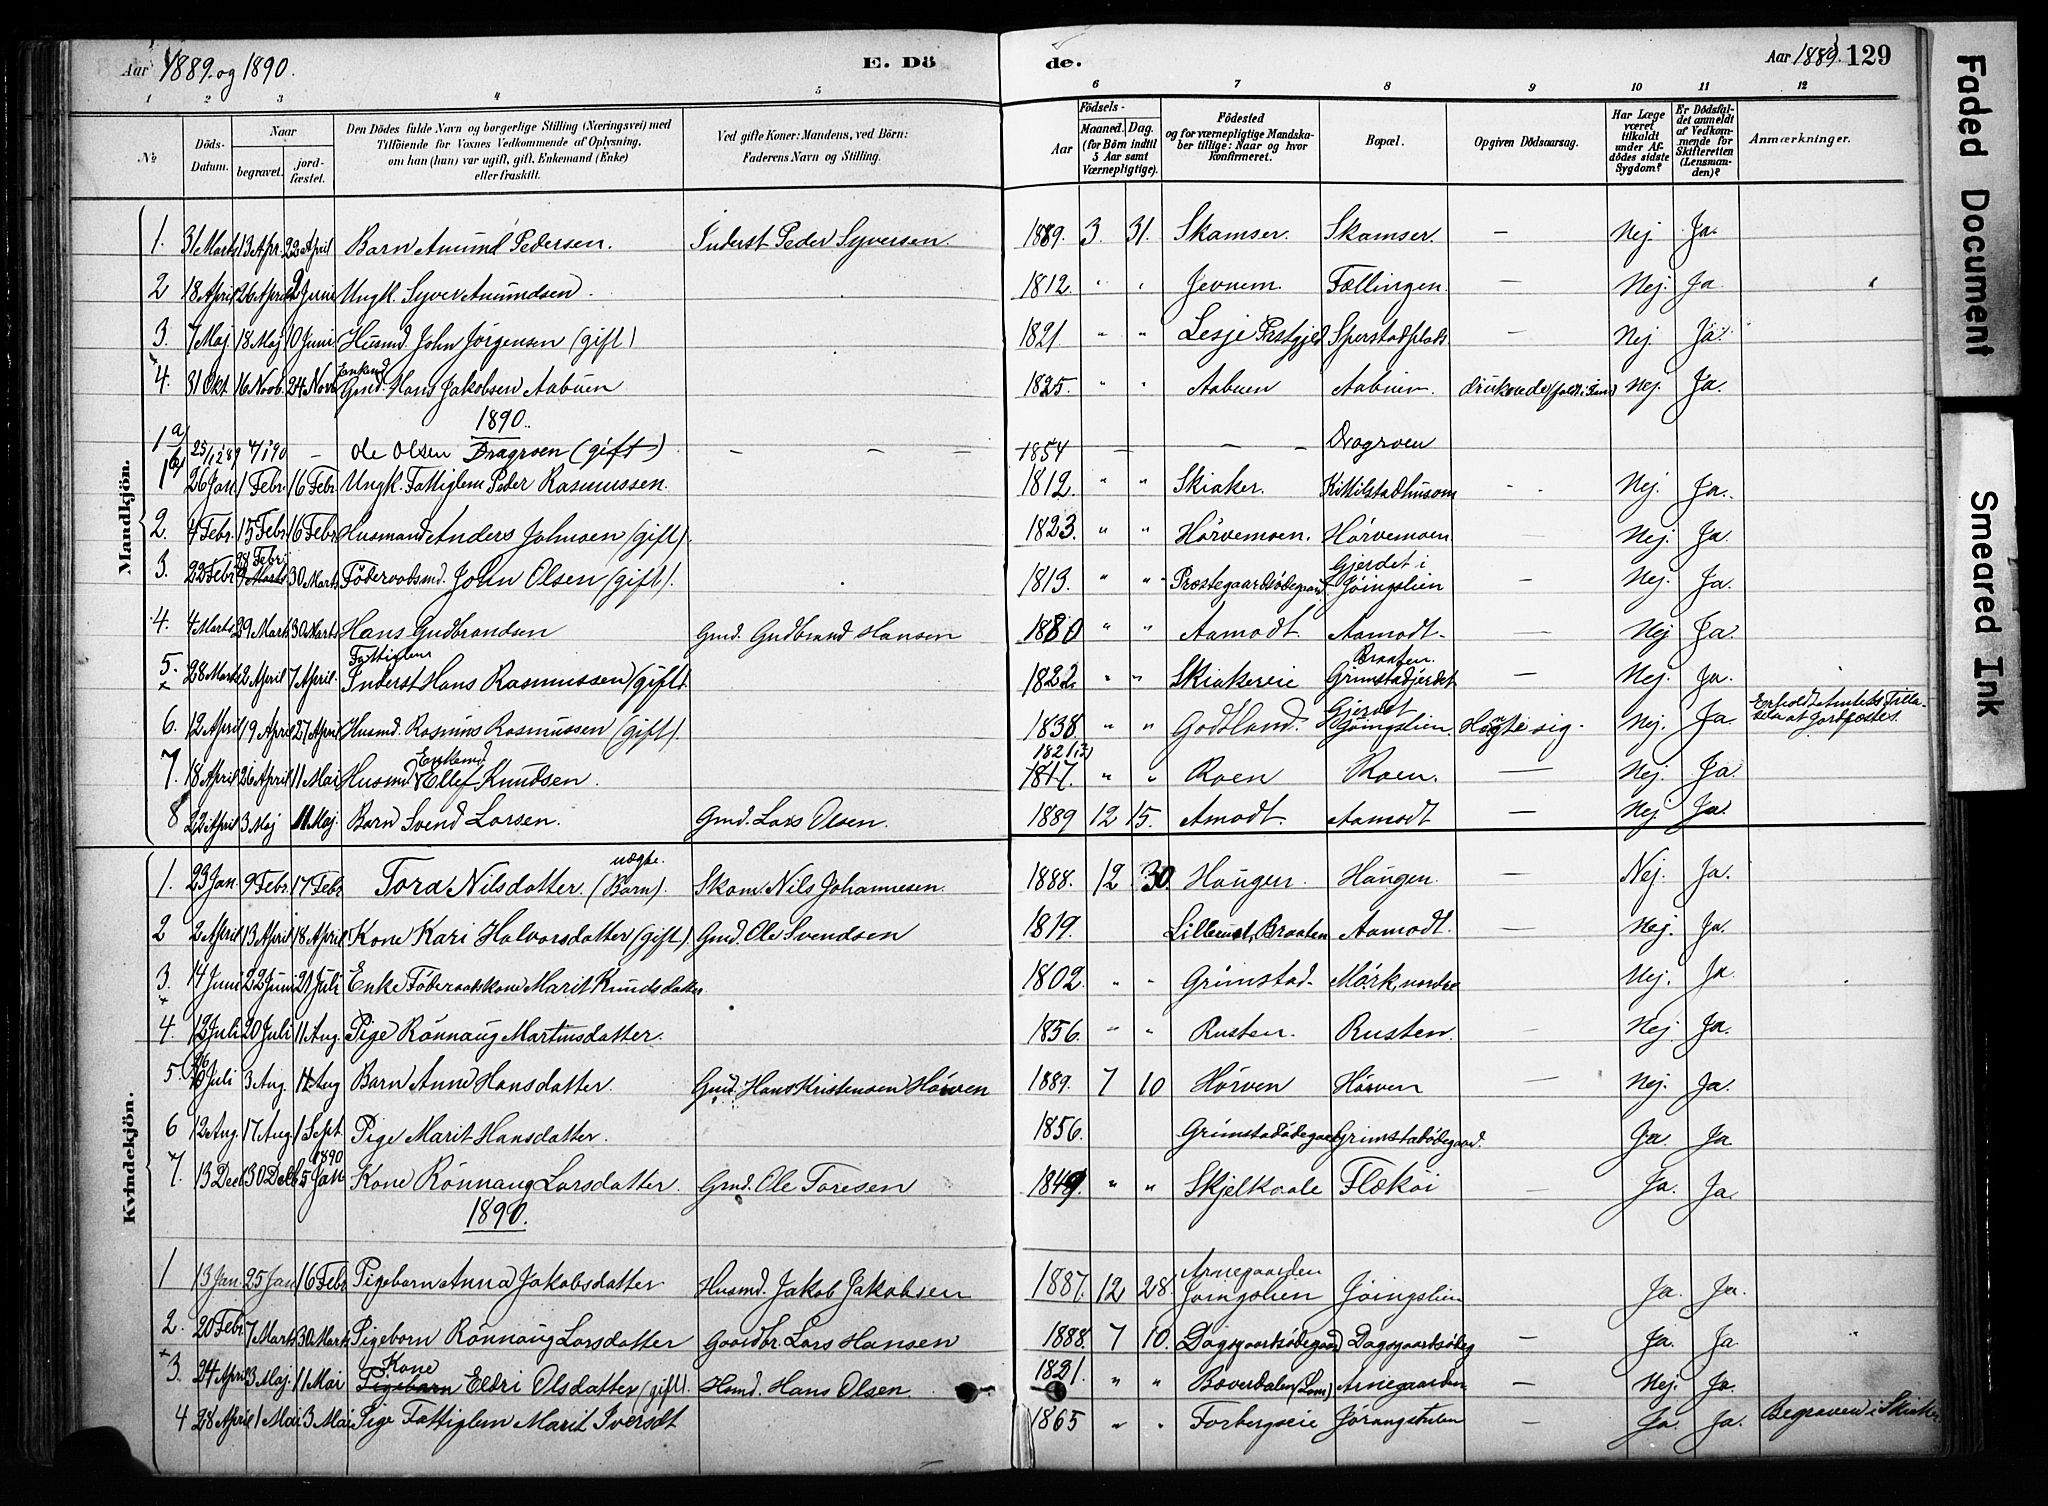 Aar 1889 og 1890. E. Dö de. Aar 1889. 129
1 2 3 4 5 6 7 8 9 10 11 12
No. Döds-Datum. Naar begravet. jordfæstet. Den Dödes fulde Navn og borgerlige Stilling (Næringsvei) med Tilföiende for Voxnes Vedkommende af Oplysning, om han (hun) var ugift, gift, Enkemand (Enke) eller fraskilt. Ved gifte Koner: Mandens, ved Börn: Faderens Navn og Stilling. Födsels- Aar Maaned. Dag. (for Börn indtil 5 Aar samt Værnepligtige). Födested og for værnepligtige Mandskaber tillige: Naar og hvor konfirmeret. Bopæl. Opgiven Dödsaarsag. Har Læge været tilkaldt under Afdödes sidste Sygdom? Er Dödsfaldet anmeldt af Vedkommende for Skifteretten (Lensmanden)? Anmærkninger.
Mandkjön.
1. 31 Marts 13 Apr. 22 April Barn Amund Pedersen. Inderst Peder Syversen. 1889. 3. 31. Skamser. Skamser. — Nej. Ja.
2 18 April 26 April 9 Juni Ungk. Syver Amundsen. 1812. " " Jevnem. Fællingen. — Nej. Ja
3. 7 Maj 18 Maj 10 Juni Husmd. John Jörgensen (gift) 1821. " " Lesje Prstgjeld Sperstadplads — Nej. Ja.
4. 31 Okt. 16 Novb. 24 Nov. Enkemd. Gmd. Hans Jakobsen Aabuen 1825. " " Aabuen Aabuen. druknede (faldt i Elven) Nej. Ja.
1890.
1a) 25/12 89 4/1 90 — Ole Olsen Dragroen (gift) — — — 1854 — — — Dragroen
1b) 26 Jan. 1 Febr. 16 Febr. Ungk. Fattiglem Peder Rasmussen. 1812. " " Skiaker. Kikilstadhusom - - Nej. Ja.
2. 4 Febr. 15 Febr. 16 Febr. Husmand Anders Johnsen (gift). 1823. " " Hörvemoen. Hörvemoen. — Nej. Ja.
3. 22 Febr. 28 Febr. 30 Marts Föderaadsmd. John Olsen (gift). 1813. " " Præstegaardsödegaard Gjerdet i Jöingslien — Nej. Ja.
4. 4 Marts 29 Marts 30 Marts Hans Gudbrandsen Gmd. Gudbrand Hansen 1880 " " Aamodt. Aamodt. — Nej Ja.
5. 28 Marts 2 April 7 April. Fattiglem Inderst Hans Rasmussen (gift). 1822. " " Skiakereie Braaten. Grimstadjerdet — Nej. Ja.
6. 12 April 19 April 27 April Husmd. Rasmus Rasmussen (gift). 1838. " " Godtland. Gjerdet Jöingslien. Hængte sig Nej. Ja. Erholdt Amtets Tilladelse at Jordfæstes.
7. 18 April 26 April 11 Mai Husmd. Enkemd. Ellef Knudsen. 1821 (?) 1817. " " Roen Roen. — Nej. Ja.
8 22 April 3 Maj 11 Maj. Barn Svend Larsen. Gmd. Lars Olsen. 1889 12 15. Amodt. Aamodt — Nej. Ja.
Kvindekjön.
1. 23 Jan. 9 Febr. 17 Febr. Tora Nilsdatter. (uægte. Barn). Skom. Nils Johannesen. 1888. 12 30 Haugen. Haugen. — Nej. Ja.
2 2 April 13 April 18 April Kone Kari Halvorsdatter (gift). Gmd. Ole Svendsen 1819. Lilleeid, Braaten Aamodt. — Nej. Ja.
3. 14 Juni 22 Juni 21 Juli Enke Föderaadskone Marit Knudsdatter 1802. " " Grimstad. Mörk, nordre Nej. Ja.
4. 12 Juli 20 Juli 11 Aug. Pige Rönnaug Martinsdatter. 1856. " " Rusten. Rusten. — Nej. Ja.
5. 26 Juli 3 Aug. 11 Aug Barn Anne Hansdatter. Gmd. Hans Kristensen Hörven 1889. 7 10 Hörven Hörven — Nej. Ja.
6 12 Aug. 17 Aug. 1 Sept. Pige Marit Hansdatter. 1856. Grimstadödegaard Grimstadödegaard. Ja. Ja.
7. 13 Dec. 30 Decb. 5 Jan. 1890 Kone Rönnaug Larsdatter. Gmd. Ole Toresen 1849. " " Skjelkvale Flækøi Ja. Ja.
1890.
1 13 Jan. 25 Jan 16 Febr. Pigebarn Anna Jakobsdatter Husmd. Jakob Jakobsen 1887. 12 28. Arnegaarden Jöingslien Jöingslien Ja. Ja.
2. 20 Febr. 7 Marts 30 Marts Pigebarn Rönnaug Larsdatter Gaardbr. Lars Hansen 1888. 7 10. Dagsgaardsödegaard Dagsgaardsödeg — Ja. Ja "
3. 24 April 3 Maj. 11 Mai Kone Pigebarn Eldri Olsdatter (gift). Hsmd. Hans Olsen 1821. " " Bæverdalen (Lom) Arnegaarden — Nej. Ja.
4 28 April 1 Mai 3 Mai Pige Fattiglem Marit Iversdt 1865 " " Forbergseie Jörangstulen — Ja. Ja. Begraven i Skiaker.
Faded Document
Smeared Ink